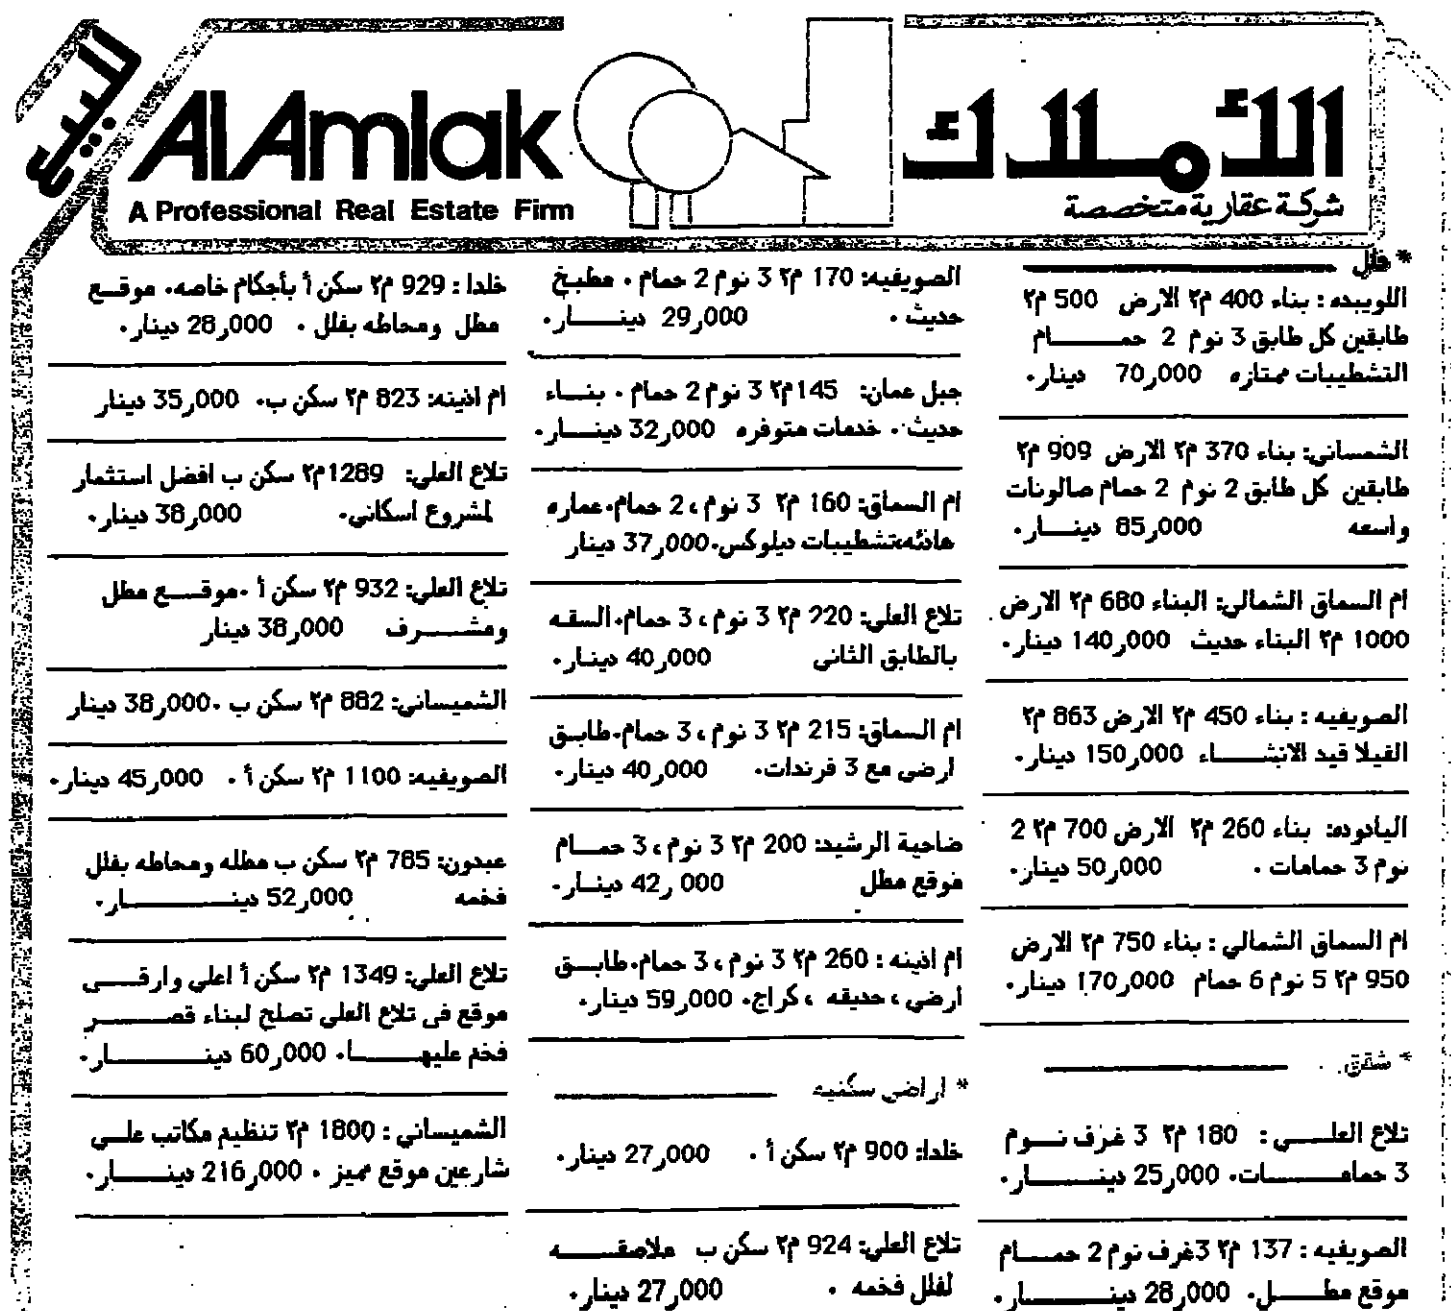 للبيع
Al Amlak
A Professional Real Estate Firm
الأملاك
شركة عقارية متخصصة
* فلل
اللويبده : بناء 400 م٢ الارض 500 م٢
طابقين كل طابق 3 نوم 2 حمــــام
التشطيبات ممتازه 70,000 دينار.
الشمساني: بناء 370 م٢ الارض 909 م٢
طابقين كل طابق 2 نوم 2 حمام صالونات
واسعه 85,000 دينــار.
ام السماق الشمالي: البناء 680 م٢ الارض
1000 م٢ البناء حديث 140,000 دينار.
الصويفيه : بناء 450 م٢ الارض 863 م٢
الفيلا قيد الانشــــاء 150,000 دينار.
اليادوده: بناء 260 م٢ الارض 700 م٢ 2
نوم 3 حمامات . 50,000 دينار.
ام السماق الشمالي : بناء 750 م٢ الارض
950 م٢ 5 نوم 6 حمام 170,000 دينار.
* شقق
تلاع العلــــي : 180 م٢ 3 غرف نــوم
3 حمامــــــات. 25,000 دينــــــار.
الصويفيه : 137 م٢ 3غرف نوم 2 حمــام
موقع مطــــل. 28,000 دينــــــار.
الصويفيه: 170 م٢ 3 نوم 2 حمام . مطبخ
حديث . 29,000 دينــــار.
جبل عمان: 145م٢ 3 نوم 2 حمام . بنــاء
حديث . خدمات متوفره 32,000 دينــار.
ام السماق: 160 م٢ 3 نوم ، 2 حمام.عماره
هادئه،تشطيبات ديلوكس.37,000 دينار
تلاع العلي: 220 م٢ 3 نوم ، 3 حمام.السقه
بالطابق الثاني 40,000 دينار.
ام السماق: 215 م٢ 3 نوم ، 3 حمام.طابــق
ارضي مع 3 فرندات. 40,000 دينار.
ضاحية الرشيد: 200 م٢ 3 نوم ، 3 حمــام
موقع مطل 42,000 دينــار.
ام اذينه : 260 م٢ 3 نوم ، 3 حمام.طابــق
ارضي ، حديقه ، كراج. 59,000 دينار.
* اراضي سكنيه
خلدا: 900 م٢ سكن أ . 27,000 دينار.
تلاع العلي: 924 م٢ سكن ب ملاصقــــه
لفلل فخمه . 27,000 دينار.
خلدا : 929 م٢ سكن أ بأجكام خاصه. موقــع
مطل ومحاطه بفلل . 28,000 دينار.
ام اذينه: 823 م٢ سكن ب. 35,000 دينار
تلاع العلي: 1289م٢ سكن ب افضل استثمار
لمشروع اسكاني. 38,000 دينار.
تلاع العلي: 932 م٢ سكن أ .موقــــع مطل
ومشــــرف 38,000 دينار
الشميساني: 882 م٢ سكن ب .38,000 دينار
الصويفيه: 1100 م٢ سكن أ . 45,000 دينار.
عبدون: 785 م٢ سكن ب مطله ومحاطه بفلل
فخمه 52,000 دينــــــــار.
تلاع العلي: 1349 م٢ سكن أ اعلي وارقــــى
موقع في تلاع العلي تصلح لبناء قصــــر
فخم عليهــــا. 60,000 دينــــــــار.
الشميساني : 1800 م٢ تنظيم مكاتب علــى
شارعين موقع مميز . 216,000 دينــــار.